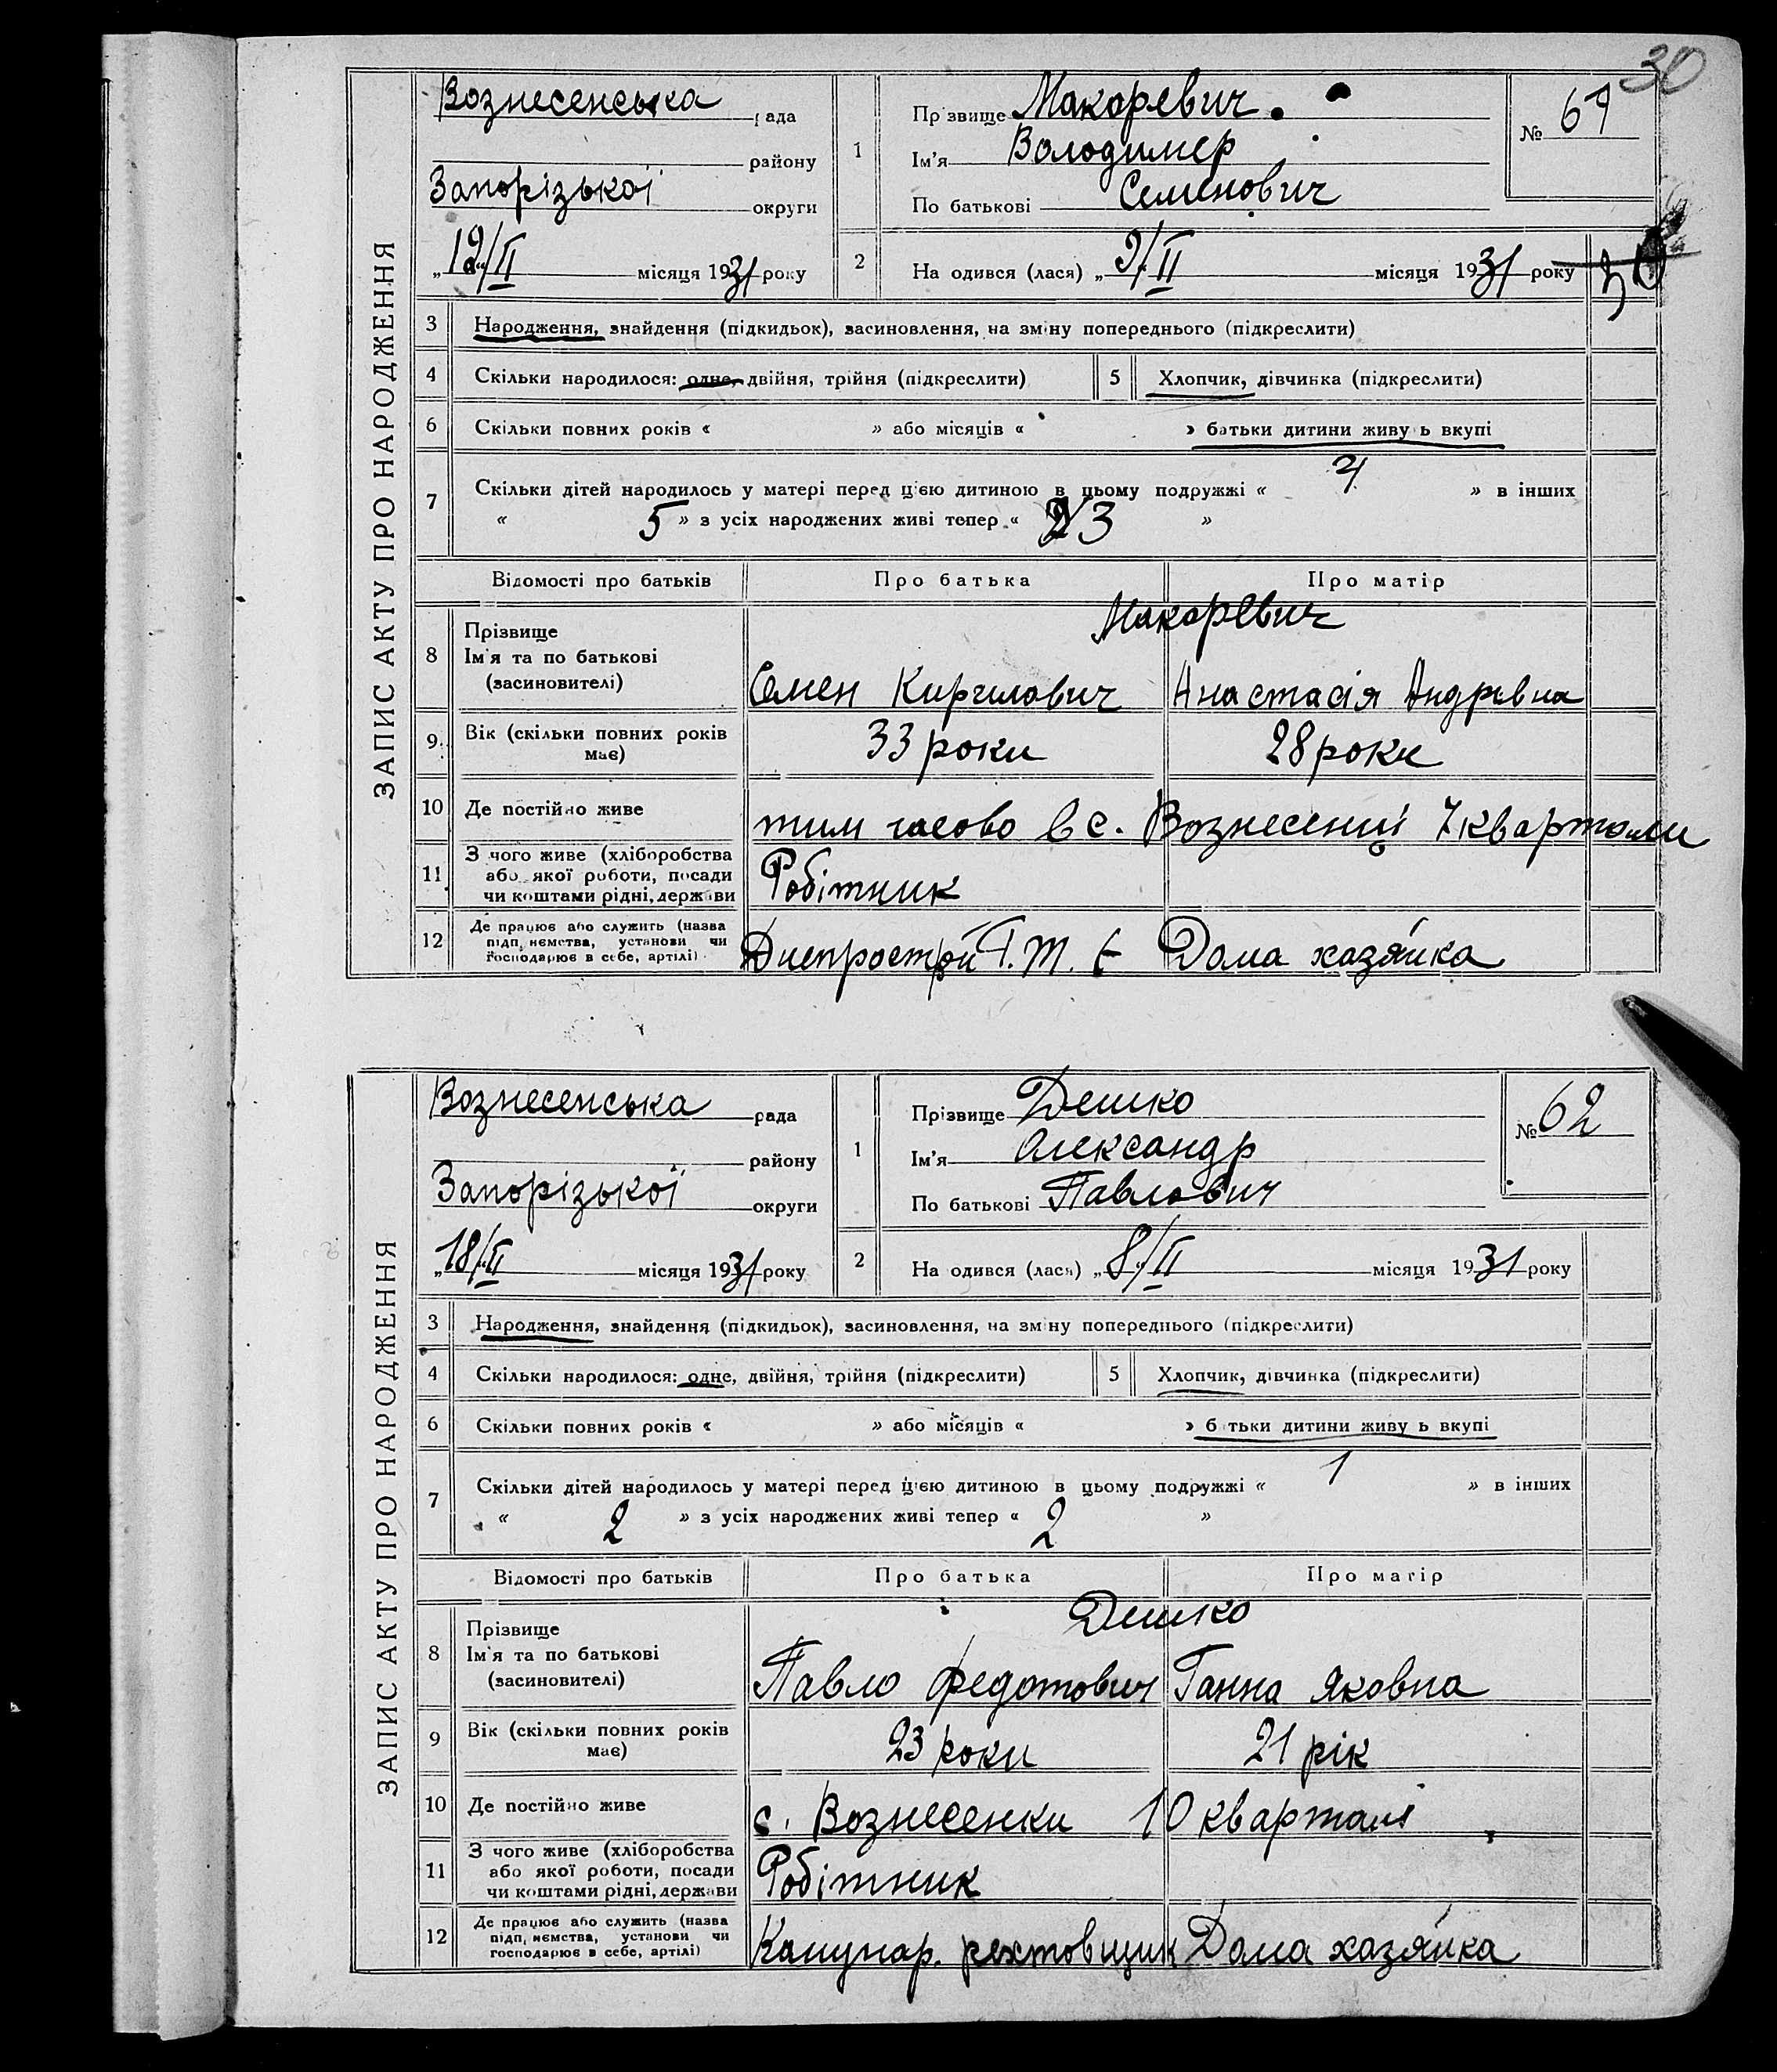 30
ЗАПИС АКТУ ПРО НАРОДЖЕННЯ
Вознесенська рада
району
Запорізької округи
„12/II місяця 1931 року
1 Прізвище Макаревич.
Ім'я Володимер
По батькові Семенович
№ 61
2 На одився (лася) „9/II місяця 1931 року
30
3 Народження, знайдення (підкидьок), засиновлення, на зміну попереднього (підкреслити)
4 Скільки народилося: одне, двійня, трійня (підкреслити) 5 Хлопчик, дівчинка (підкреслити)
6 Скільки повних років « » або місяців « » батьки дитини живу ь вкупі
7 Скільки дітей народилось у матері перед цією дитиною в цьому подружжі « 4 » в інших
« 5 » з усіх народжених живі тепер « 3 »
Відомості про батьків Про батька Про матір
Макаревич
8 Прізвище
Ім'я та по батькові
(засиновителі)
Семен Кирилович Анастасія Андрівна
9 Вік (скільки повних років
має)
33 роки 28 роки
10 Де постійно живе
тим часово в с. Вознесенці 7 квартали
11 З чого живе (хліборобства
або якої роботи, посади
чи коштами рідні, держави
Робітник
12 Де працює або служить (назва
підп, немства, установи чи
господарює в себе, артілі)
Днепрострой Т. Дома хазяйка
ЗАПИС АКТУ ПРО НАРОДЖЕННЯ
Вознесенська рада
району
Запорізької округи
„18/II місяця 1931 року
1 Прізвище Дешко
Ім'я Олександр
По батькові Павлович
№ 62
2 На одився (лася) „8/II місяця 1931 року
3 Народження, знайдення (підкидьок), засиновлення, на зміну попереднього (підкреслити)
4 Скільки народилося: одне, двійня, трійня (підкреслити) 5 Хлопчик, дівчинка (підкреслити)
6 Скільки повних років « » або місяців « » б тьки дитини живу ь вкупі
7 Скільки дітей народилось у матері перед цією дитиною в цьому подружжі « 1 » в інших
« 2 » з усіх народжених живі тепер « 2 »
Відомості про батьків Про батька Про матір
Дешко
8 Прізвище
Ім'я та по батькові
(засиновителі)
Павло Федотович Ганна Яковна
9 Вік (скільки повних років
має)
23 роки 21 рік
10 Де постійно живе
с. Вознесенки 10 кварталі
11 З чого живе (хліборобства
або якої роботи, посади
чи коштами рідні, держави
Робітник
12 Де працює або служить (назва
підп, немства, установи чи
господарює в себе, артілі)
Комунар. Дома хазяйка